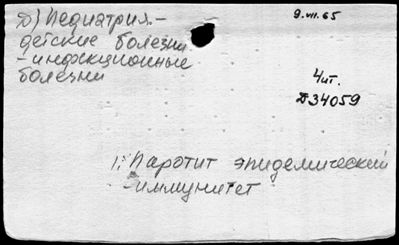 Д) Педиатрия -
9.VII.65
детские болезни
- инфекционные
болезни
4 ит.
Д34059
1: Паротит эпидемический
- иммунитет